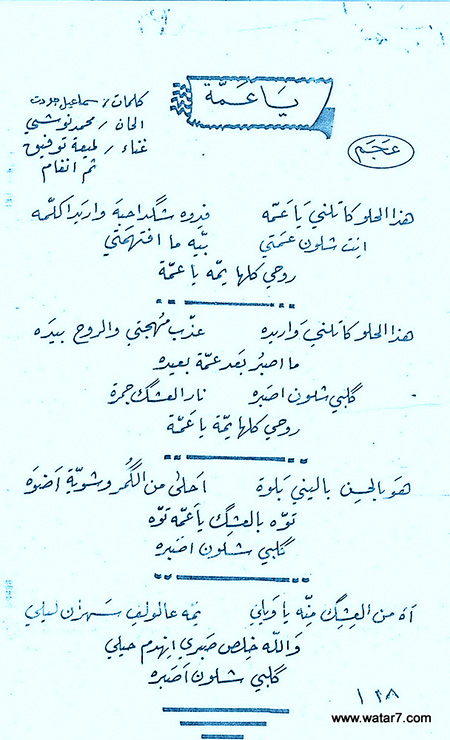 يا عمّة
عجم
كلمات / سماعيل جودت
الحان / محمد نوشي
غناء / لميعة توفيق
ثم انغام
هذا الحلو كاتلني يا عمّه فدوه شگد احبّه واريد اكلّمه
انت شلون عمتي بيّه ما افتهمتي
روحي كلها يمّه يا عمّة
هذا الحلو كاتلني واريده عذّب مُهجتي والروح بيده
ما اصبرُ بَعد عمّة بعيده
گلبي شلون اصبره نار العشگ جمرة
روحي كلها يمّة يا عمّة
هو بالحسن باليني بلوة احلى من الگمر وشويّة اضوَه
توّه بالعشِگ يا عمّه توّه
گلبي شلون اصبره
آه من العِشِگ مِنّه يا ويلي يمّه عالولف سهران ليلي
والله خلِص صَبري انهدم حيلي
گلبي شلون اَصَبره
١٢٨
www.watar7.com